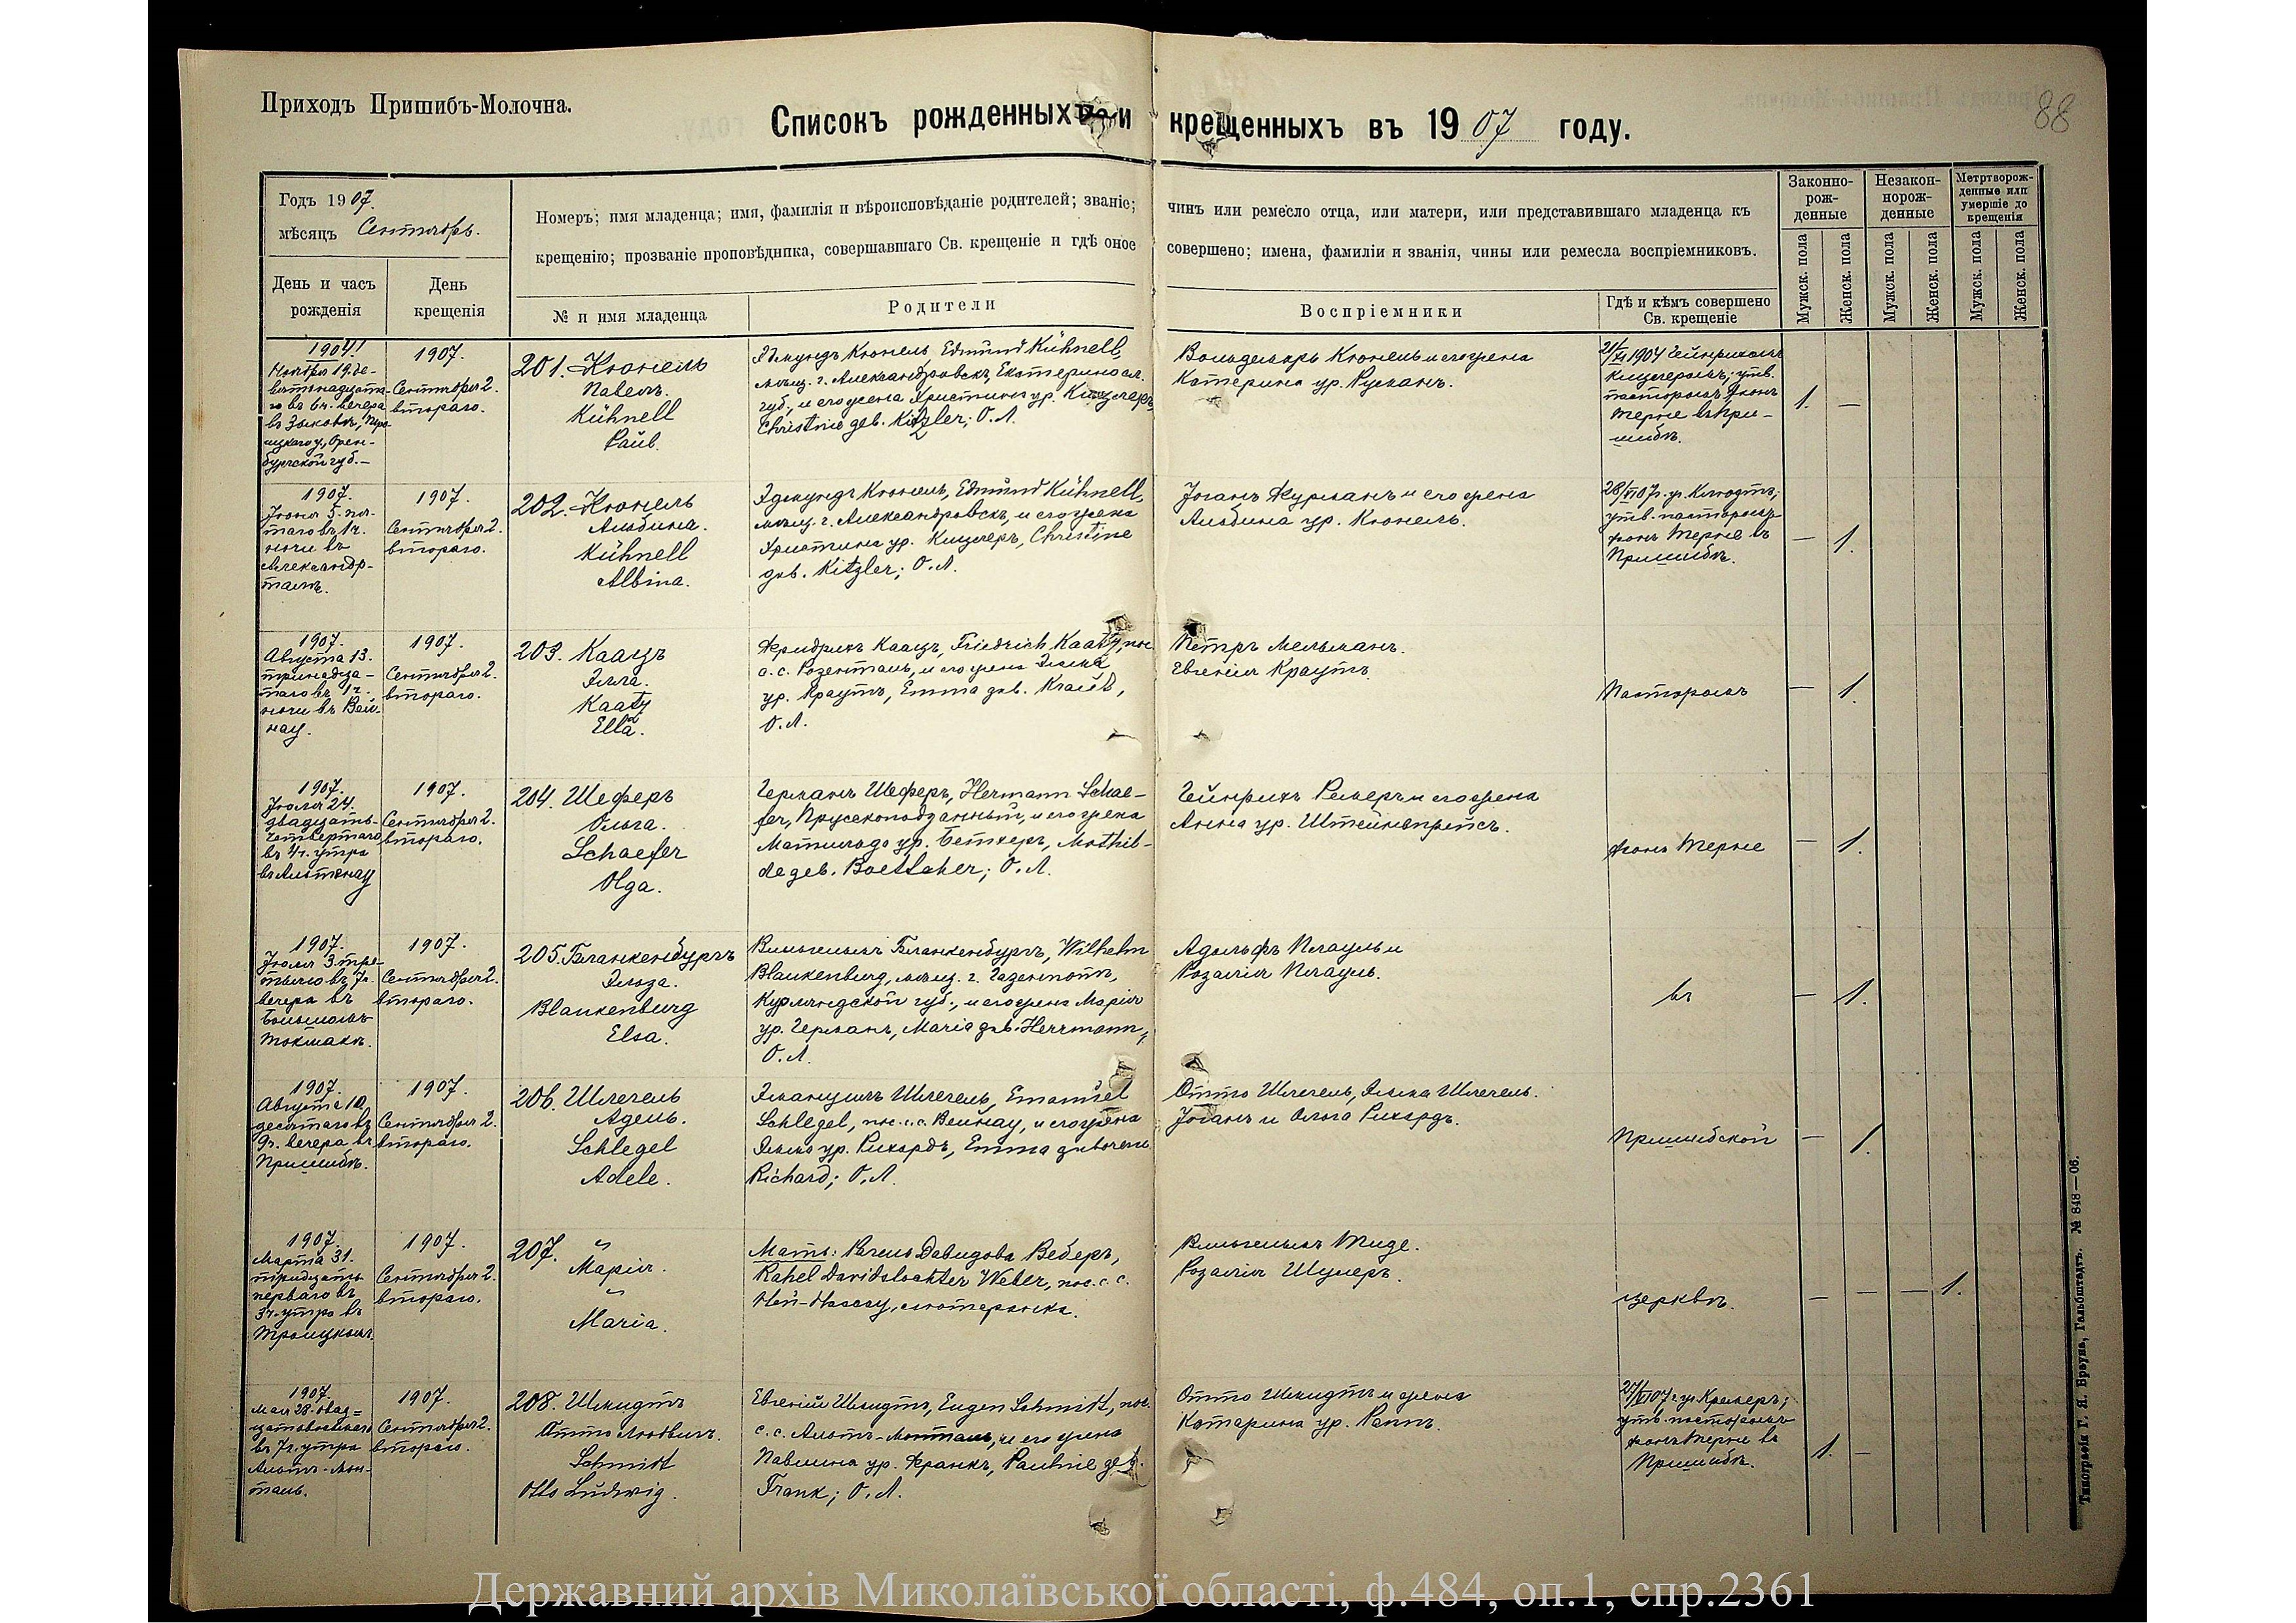 Приходъ Пришибъ-Молочна.
88
Списокъ рожденныхъ и крещенныхъ въ 1907 году.
Годъ 1907.
мѣсяцъ Сентябрь.
Номеръ; имя младенца; имя, фамилія и вѣроисповѣданіе родителей; званіе; чинъ или ремесло отца, или матери, или представившаго младенца къ
крещенію; прозваніе проповѣдника, совершавшаго Св. крещеніе и гдѣ оное совершено; имена, фамиліи и званія, чины или ремесла воспріемниковъ.
Законно-
рож-
денные
Незакон-
норож-
денные
Метртворож-
денные или
умершіе до
крещенія
День и часъ
рожденія
День
крещенія
№ и имя младенца
Родители
Воспріемники
Гдѣ и кѣмъ совершено
Св. крещеніе
Мужск. пола
Женск. пола
Мужск. пола
Женск. пола
Мужск. пола
Женск. пола
1904!
Ноября 19. де-
вятнадцата-
го въ 6 ч. вечера
въ Зыковѣ, Тро-
ицкаго у., Орен-
бургской губ.-
1907.
Сентября 2.
втораго.
201. Кюнель
Павелъ.
Kühnell
Paul.
Эдмундъ Кюнель, Edmund Kühnell,
мѣщ. г. Александровскъ, Екатериносл.
губ., и его жена Христина ур. Кицлеръ,
Christine geb. Kitzler; О.Л.
Вольдемаръ Кюнель и его жена
Катерина ур. Русманъ.
21/XI 1904 Гейнрихомъ
Кицлеромъ; утв.
пасторомъ фонъ
Терне въ При-
шибѣ.
1. —
1907.
Іюня 5. пя-
таго въ 1 ч.
ночи въ
Александр-
талѣ.
1907.
Сентября 2.
втораго.
202. Кюнель
Альбина.
Kühnell
Albina.
Эдмундъ Кюнель, Edmund Kühnell,
мѣщ. г. Александровскъ, и его жена
Христина ур. Кицлеръ, Christine
geb. Kitzler; О.Л.
Іоганъ Фурманъ и его жена
Альбина ур. Кюнель.
28/VI 07 г. уч.
утв. пасторомъ
фонъ Терне въ
Пришибѣ.
— 1.
1907.
Августа 13.
тринадца-
таго въ 1 ч.
ночи въ Вей-
нау.
1907.
Сентября 2.
втораго.
203. Каацъ
Элла.
Kaatz
Ella.
Фридрихъ Каацъ, Friedrich Kaatz, пос.
с. с. Розенталь, и его жена Эмма
ур. Краутъ, Emma geb. Kraut,
О.Л.
Петръ Мельманъ.
Евгенія Краутъ.
Пасторомъ
— 1.
1907.
Іюля 24.
двадцать-
четвертаго
въ 4 ч. утра
въ Альтнау
1907.
Сентября 2.
втораго.
204. Шеферъ
Ольга.
Schaefer
Olga.
Германъ Шеферъ, Hermann Schae-
fer, Прусскоподданный, и его жена
Матильда ур. Бетхеръ, Mathil-
de geb. Boettcher; О.Л.
Гейнрихъ Ремеръ и его жена
Анна ур. Штейнепрейсъ.
фонъ Терне
— 1.
1907.
Іюля 3. тре-
тьяго въ 7 ч.
вечера въ
Большомъ
Токмакѣ.
1907.
Сентября 2.
втораго.
205. Бланкенбургъ
Эльза.
Blankenburg
Elsa.
Вильгельмъ Бланкенбургъ, Wilhelm
Blankenburg, мѣщ. г. Газенпотъ,
Курляндской губ., и его жена Марія
ур. Германъ, Maria geb. Herrmann,
О.Л.
Адольфъ Плауль и
Розалія Плауль.
въ
— 1.
1907.
Августа 10.
десятаго въ
9 ч. вечера въ
Пришибѣ.
1907.
Сентября 2.
втораго.
206. Шлегель
Адель.
Schlegel
Adele.
Эмануилъ Шлегель, Emanuel
Schlegel, пос. с. с. Вейнау, и его жена
Эмма ур. Рихардъ, Emma geborene
Richard; О.Л.
Отто Шлегель, Эмма Шлегель.
Іоганъ и Ольга Рихардъ.
Пришибской
— 1.
1907.
Марта 31.
тридцать
перваго въ
3 ч. утра въ
Троицкомъ.
1907.
Сентября 2.
втораго.
207. „
Марія.
„
Maria.
Мать: Рахиль Давидова Веберъ,
Rahel Davidstochter Weber, пос. с. с.
Ней-Нассау, лютеранка.
Вильгельмъ Тиде.
Розалія Шулеръ.
церквѣ.
— — — 1.
1907.
Мая 28. двад-
цатовосьмаго
въ 7 ч. утра
Альтъ-Мон-
таль.
1907.
Сентября 2.
втораго.
208. Шмидтъ
Отто Людвигъ.
Schmidt
Otto Ludwig.
Евгеній Шмидтъ, Eugen Schmidt, пос.
с. с. Альтъ-Монталь, и его жена
Павлина ур. Франкъ, Pauline geb.
Frank; О.Л.
Отто Шмидтъ и жена
Катарина ур. Раппъ.
27/VI 07 г. уч. Кремеръ;
утв. пасторомъ
фонъ Терне въ
Пришибѣ.
1. —
Типографія Г. Я. Браунъ, Гальбштадтъ. № 848—06.
Державний архів Миколаївської області, ф.484, оп.1, спр.2361